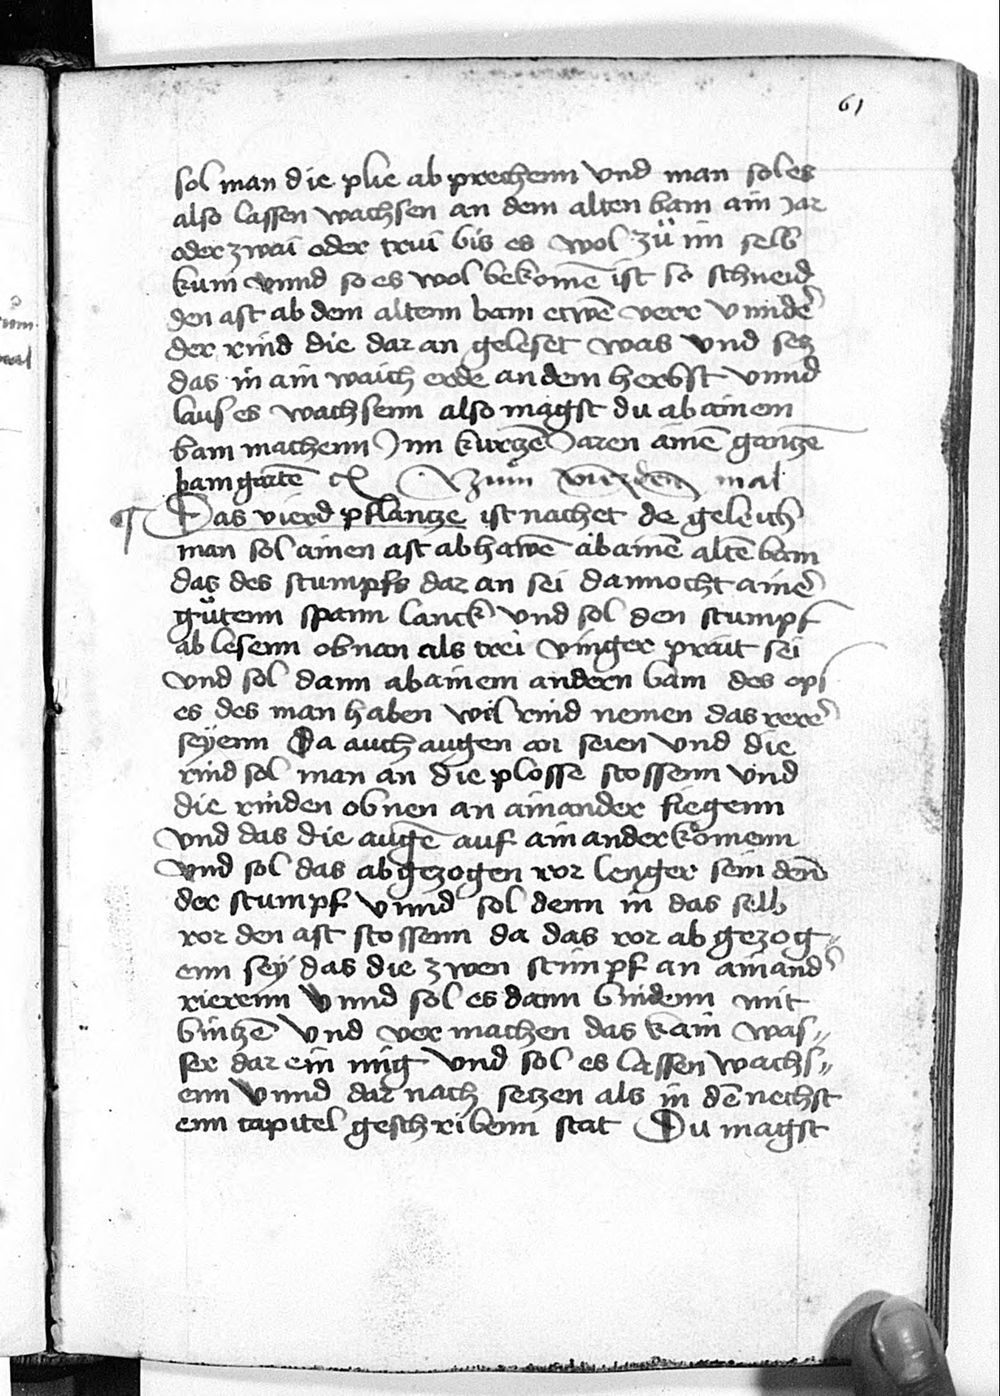 61
sol man die plie ab prechenn vnd man sol es
also lassen wachsen an dem alten bam ain Jar
oder zwai oder trui bis es wol zü im selb
kum vnnd so es wol bekomē ist so schneid
den ast ab dem altenn bam etwē verr vnndē
der rind die dar an geleset was vnd setz
das in ain waich erde an dem herbst vnnd
laus es wachsenn also magst du ab ainem
bam machenn Jnn kurtzē Jaren ainē gantzē
bamgartē Zum vierden mal
Das vierd pflantze ist nachet de geleich
man sol ainen ast ab hawē ab ainē altē bam
das des stumpfs dar an sei dannocht ainer
gůtenn spann lanck vnd sol den stumpf
ab lesenn obnan als trei vinger prait sei
vnd sol dann ab ainem andern bam des ops
es des man haben wil rind nemen das rerer
seÿenn Da auch augen an seien vnd die
rind sol man an die plosse stossenn vnd
die rinden obnen an ainander fiegenn
vnd das die augē auf ain ander komenn
vnd sol das abgezogen ror lenger sein denn
der stumpf vnnd sol denn in das selb
ror den ast stossenn da das ror ab gezog„
enn seÿ das die zwen stimpf an ainand
rierenn vnnd sol es dann bindenn mit
bintzē vnd ver machen das kain was„
ser dar ein mig vnd sol es lassen wachs„
enn vnnd dar nach setzen als in dē nechst
enn capitel geschribenn stat Du magst